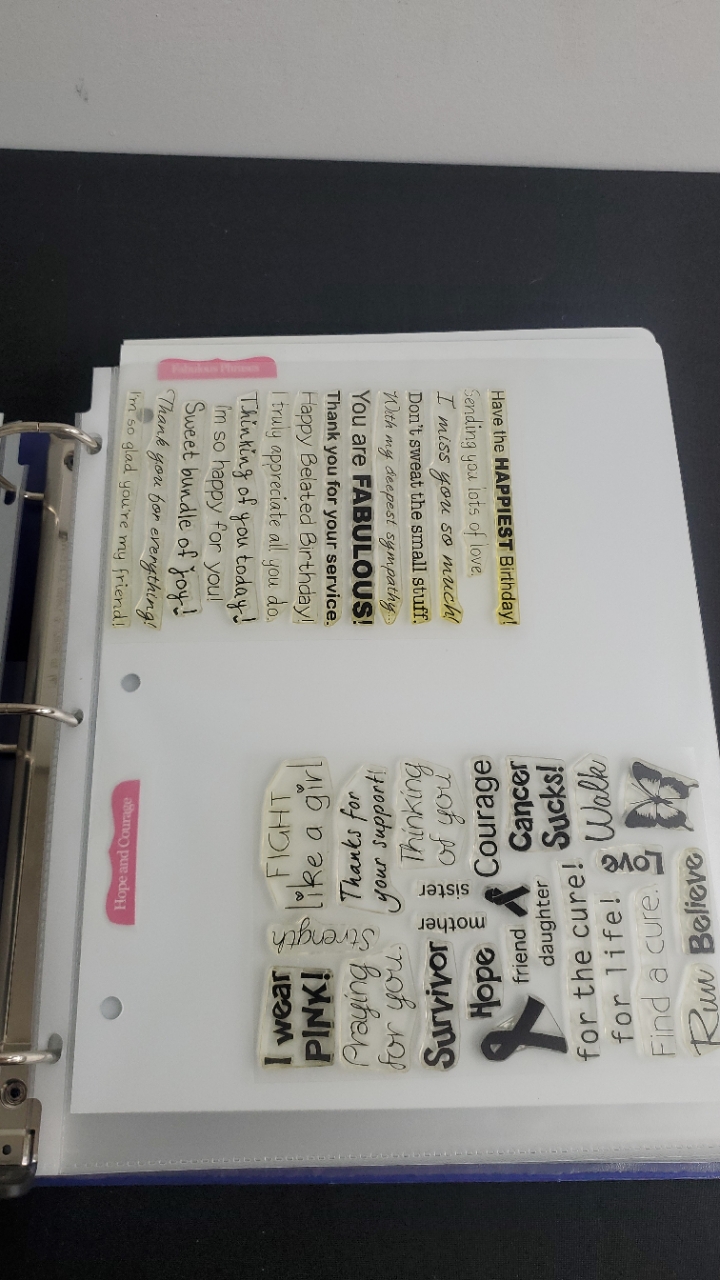 Fabulous Phrases
Have the HAPPIEST Birthday!
Sending you lots of love.
I miss you so much!
Don't sweat the small stuff.
With my deepest sympathy...
You are FABULOUS!
Thank you for your service.
Happy Belated Birthday!
I truly appreciate all you do.
Thinking of you today!
I'm so happy for you!
Sweet bundle of joy!
Thank you for everything!
I'm so glad you're my friend!
Hope and Courage
I wear
PINK!
Strength
FIGHT
like a girl
Praying
for you.
Thanks for
your support!
Survivor
mother
sister
Thinking
of you
Hope
Courage
friend
daughter
Cancer
Sucks!
for the cure!
for life!
Love
Walk
Find a cure.
Run
Believe